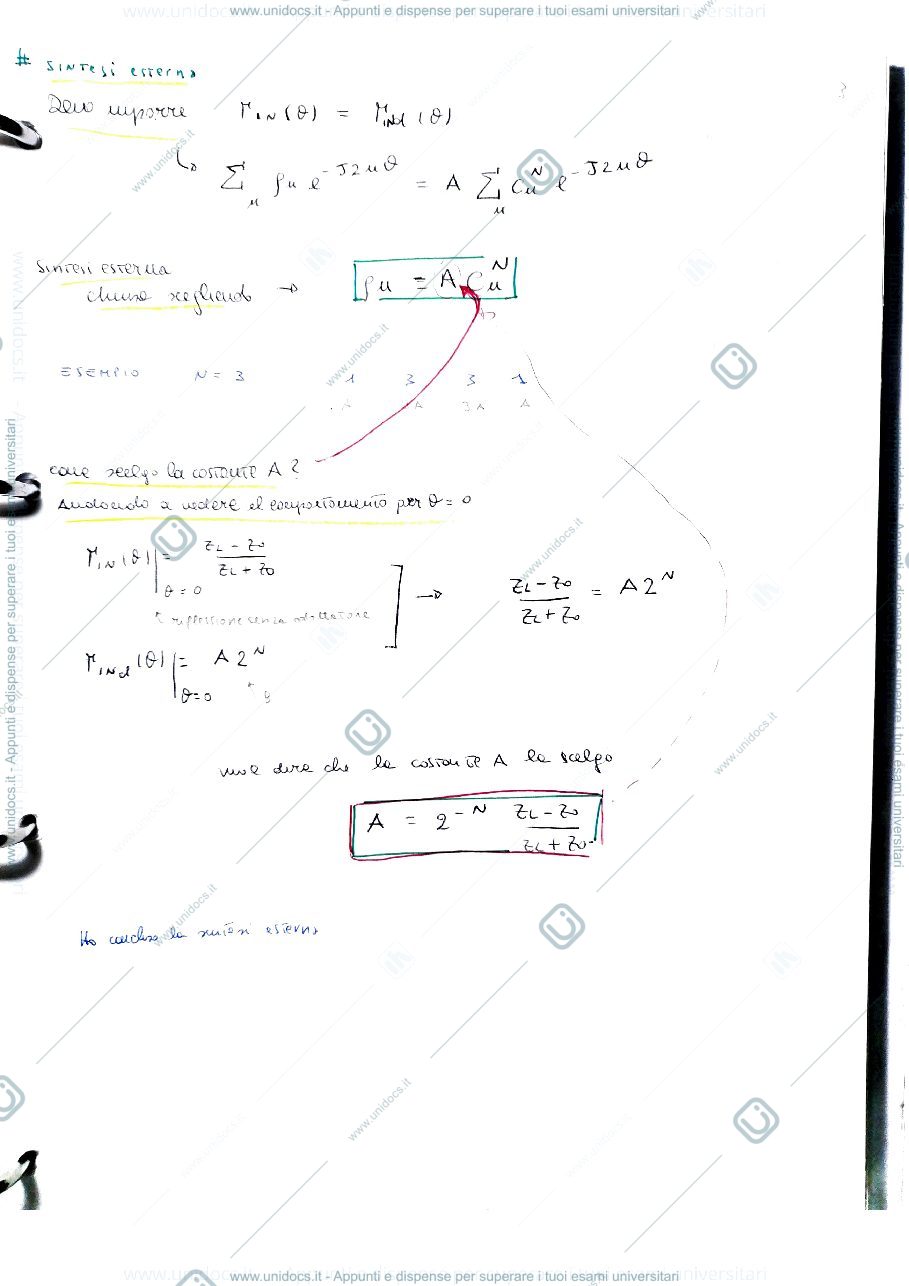 www.unidocs.it - Appunti e dispense per superare i tuoi esami universitari
3
# SINTESI ESTERNA
Devo imporre Γ_IN(θ) = Γ_INd(θ)
↳ Σ_n ρ_n e^{-J2nθ} = A Σ_n C_n^N e^{-J2nθ}
SINTESI ESTERNA
chiusa scegliendo → ρ_n = A C_n^N
ESEMPIO N = 3 1 3 3 1
A A 3A A
come scelgo la costante A?
Andando a vedere il comportamento per θ = 0
Γ_IN(θ)|_{θ=0} = (Z_L - Z_0)/(Z_L + Z_0)
riflessione senza adattatore
→ (Z_L - Z_0)/(Z_L + Z_0) = A 2^N
Γ_INd(θ)|_{θ=0} = A 2^N
vuol dire che la costante A la scelgo
A = 2^{-N} (Z_L - Z_0)/(Z_L + Z_0)
Ho concluso la sintesi esterna
www.unidocs.it - Appunti e dispense per superare i tuoi esami universitari